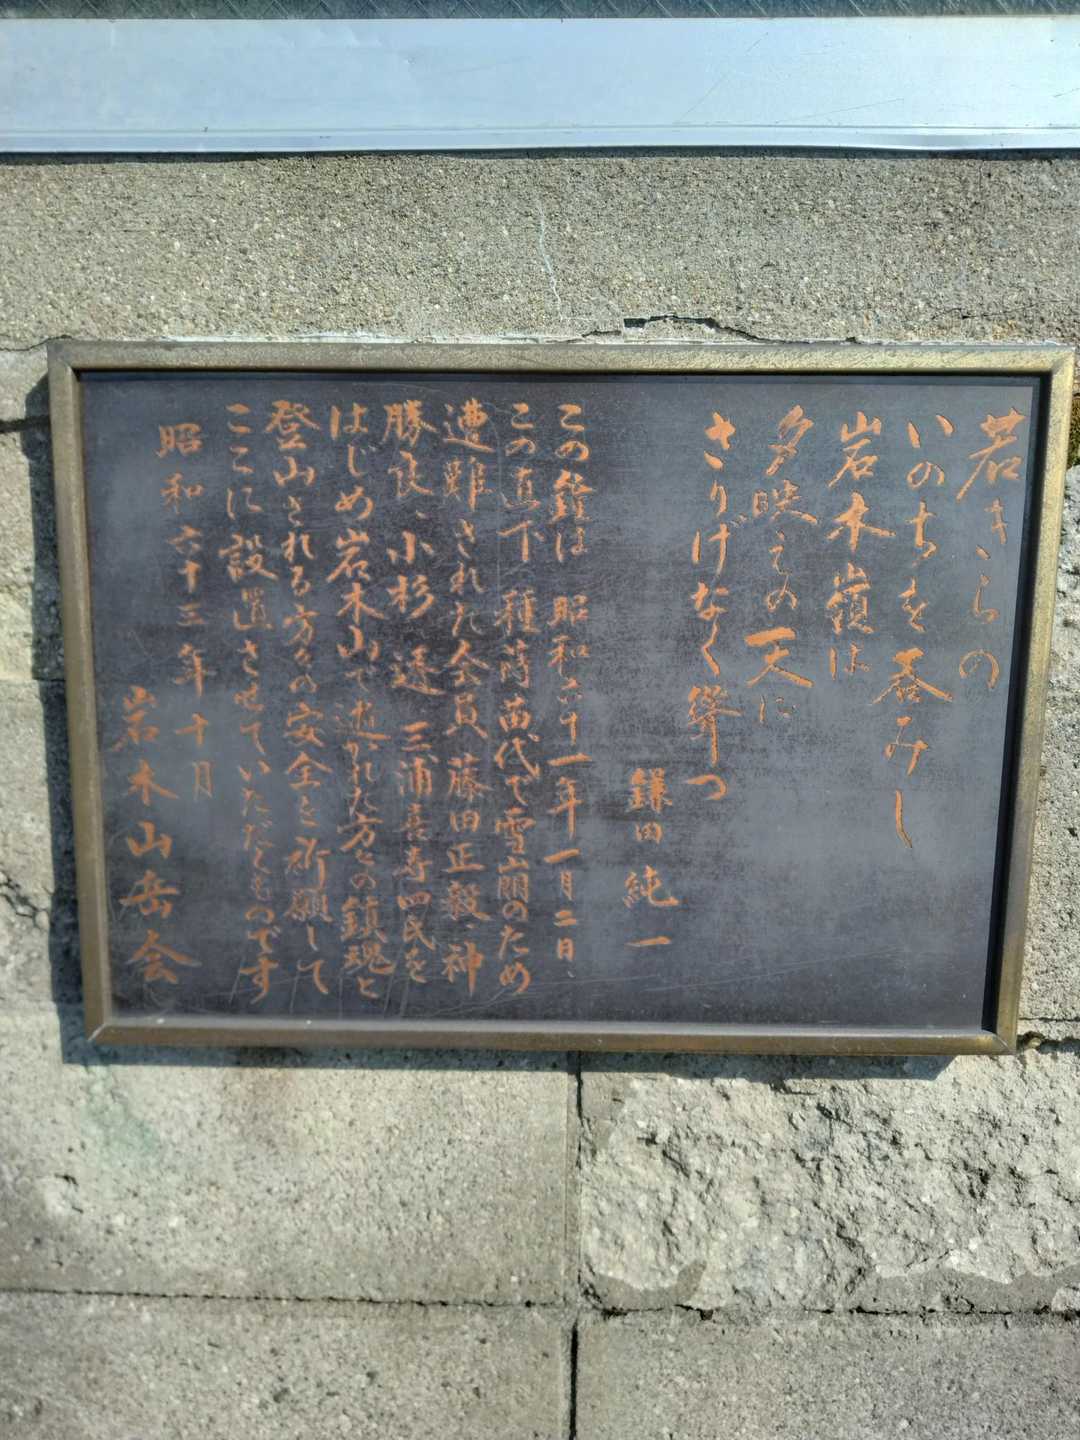 若きらの
いのちを呑みし
岩木嶺は
夕映えの天に
さりげなく聳つ
鎌田純一
この鐘は 昭和六十一年一月二日、
この直下 種蒔苗代で雪崩のため
遭難された会員 藤田正毅、神
勝良、小杉 透 三浦喜寿四氏を
はじめ岩木山で逝かれた方々の鎮魂と
登山される方々の安全を祈願して
ここに設置させていただくものです
昭和六十三年十月
岩木山岳会